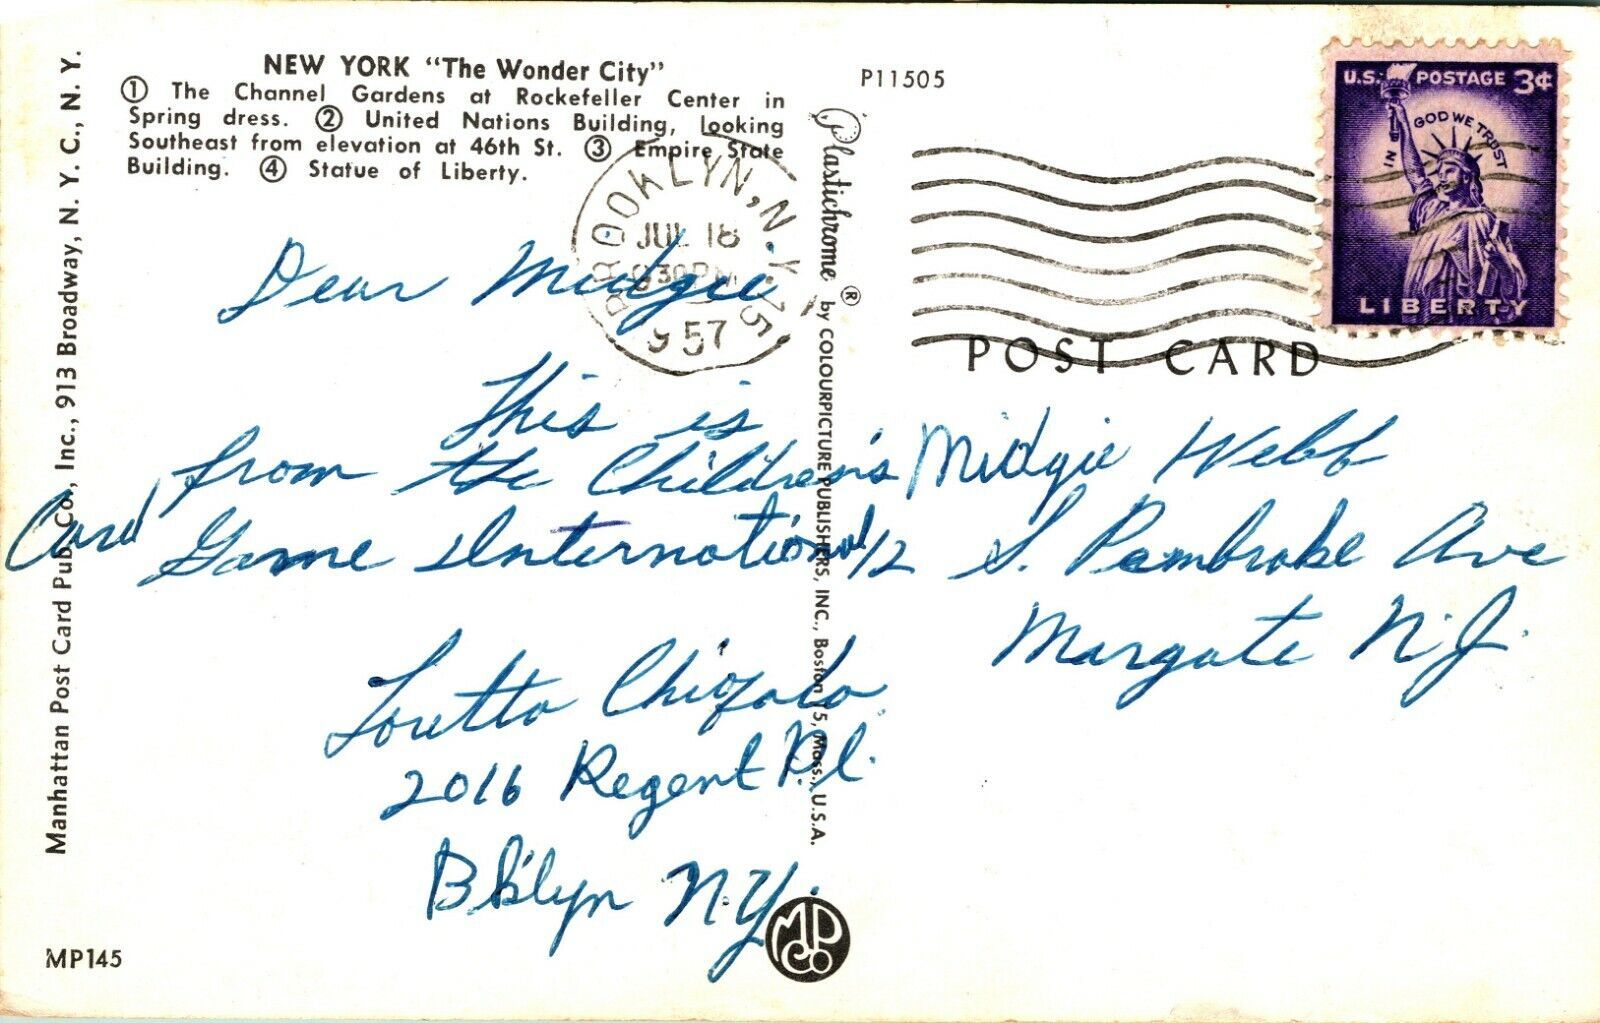 NEW YORK "The Wonder City"
① The Channel Gardens at Rockefeller Center in
Spring dress. ② United Nations Building, looking
Southeast from elevation at 46th St. ③ Empire State
Building. ④ Statue of Liberty.
P11505
U.S. POSTAGE 3¢
IN GOD WE TRUST
LIBERTY
BROOKLYN, N.Y. 15
JUL 18
9 30 PM
1957
POST CARD
Dear Midgie
This is
from the Children's
Card Game International
Loretta
2016 Regent Pl.
Bklyn N.Y.
Midgie Webb
12 S. Pembroke Ave
Margate N.J.
Manhattan Post Card Pub. Co., Inc., 913 Broadway, N. Y. C., N. Y.
Plastichrome ® by COLOURPICTURE PUBLISHERS, INC., Boston 15, Mass., U.S.A.
MP145
MPCo.